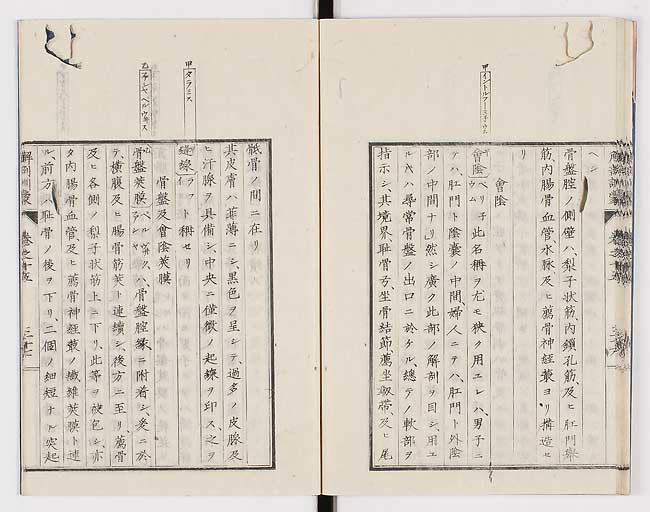 ヘシ
骨盤腔ノ側壁ハ、梨子狀筋、内鎖孔筋、及ヒ肛門舉
筋、内腸骨血管、水脉、及ヒ薦骨神経叢ヨリ構造セ
リ
會陰
會陰 ペリ子ウム 此名稱ヲ尤モ狹ク用エレハ、男子ニ
テハ、肛門ト陰嚢ノ中間、婦人ニテハ、肛門ト外陰
部ノ中間ナリ、然シ廣ク此部ノ解剖ヲ目シ、用エ
ルキハ尋常骨盤ノ出口ニ於ケル總テノ軟部ヲ
指示シ、其境界耻骨方、坐骨結節、薦坐靱帶、及ヒ尾
骶骨ノ間ニ在リ
其皮膚ハ菲薄ニシ、黒色ヲ呈シテ、過多ノ皮脺及
ヒ汗腺ヲ具備シ、中央ニ僅微ノ起線ヲ印ス、之ヲ
縫線 ト稱セリ
骨盤及會陰莢膜
骨盤莢膜 ハ、骨盤腔縁ニ附着シ、爰ニ於
テ、横腹及ヒ腸骨筋莢ト連續シ、後方ニ至リ薦骨
及ヒ各側ノ梨子狀筋上ニ下リ、此等ヲ被包シ、亦
タ内腸骨血管、及ヒ薦骨神経叢ノ纎維莢膜ト連
ル、前方ハ耻骨ノ後ヲ下リ二個ノ細短ナル突起
解剖訓蒙
巻之十五